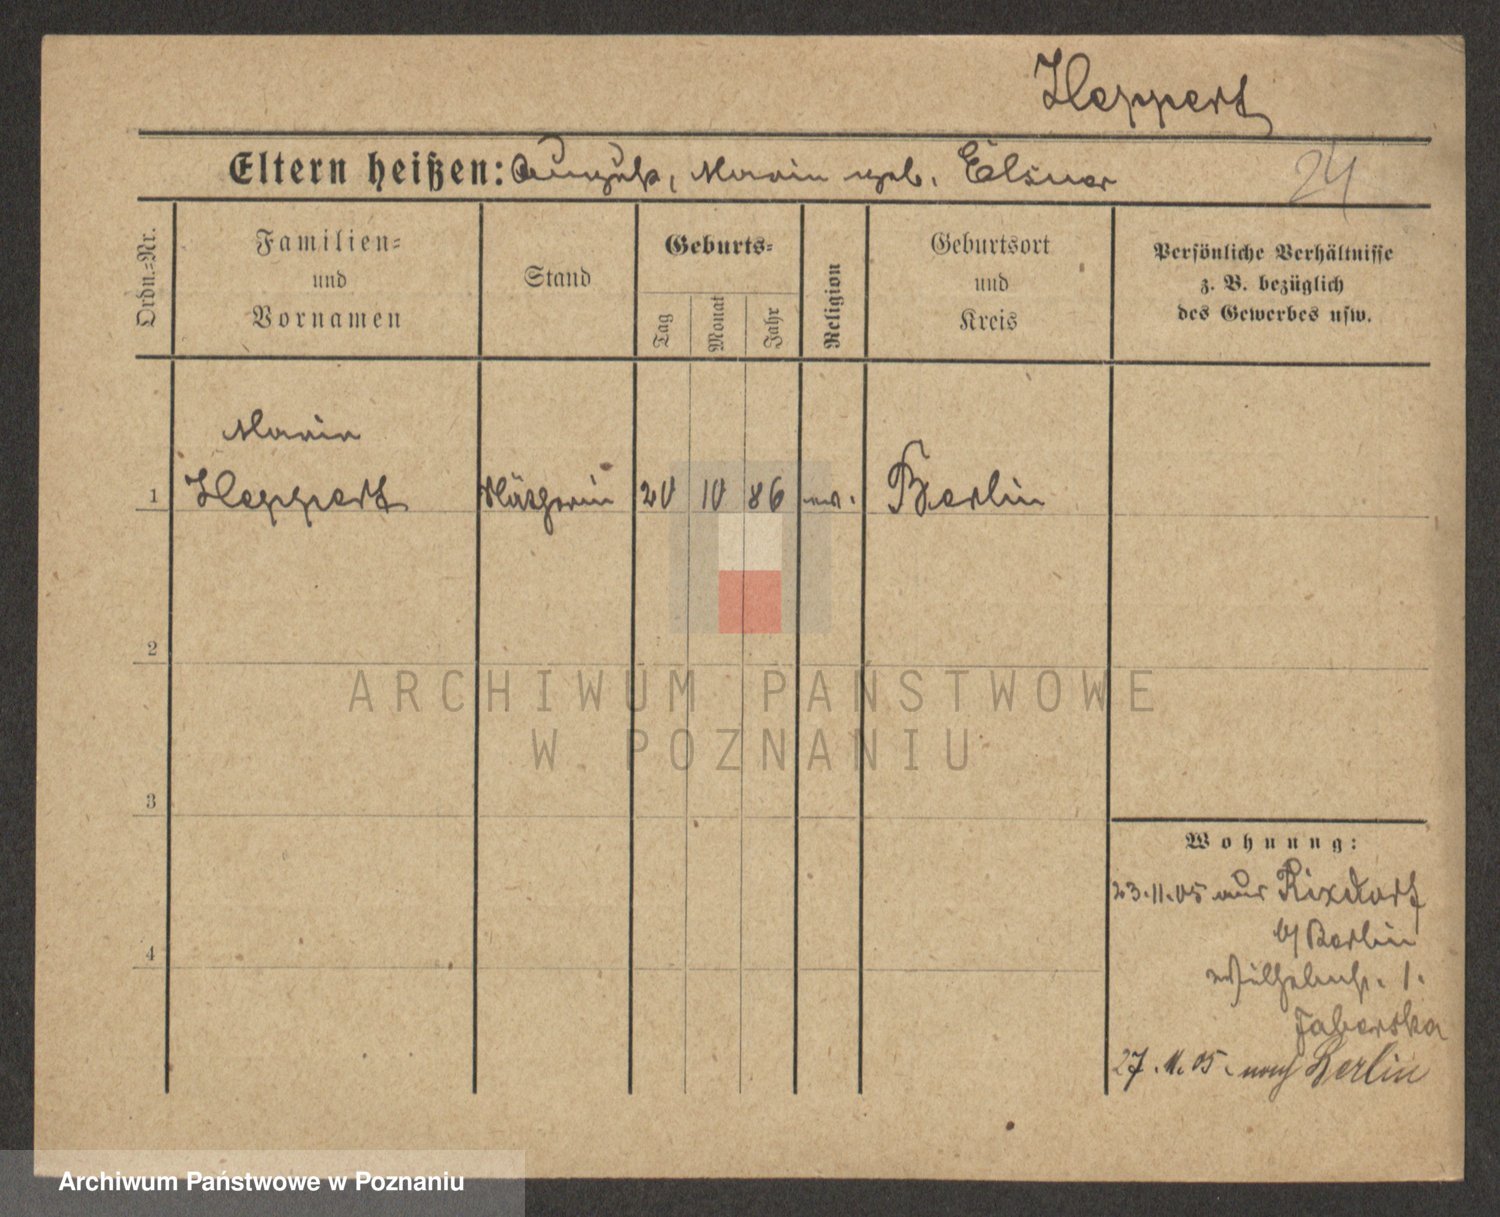 Heppert
Eltern heißen: August, Marie geb. Elsner
24
Ordn.=Nr.
Familien=
und
Vornamen
Stand
Geburts=
Tag
Monat
Jahr
Religion
Geburtsort
und
Kreis
Persönliche Verhältnisse
z. B. bezüglich
des Gewerbes usw.
Marie
1 Heppert Nätherin 20 10 86 ev. Berlin
2
ARCHIWUM PAŃSTWOWE
W POZNANIU
3
Wohnung:
23.11.05 aus Rixdorf
b/ Berlin
4
Wilhelmst. 1.
Faberska
27.11.05. nach Berlin
Archiwum Państwowe w Poznaniu